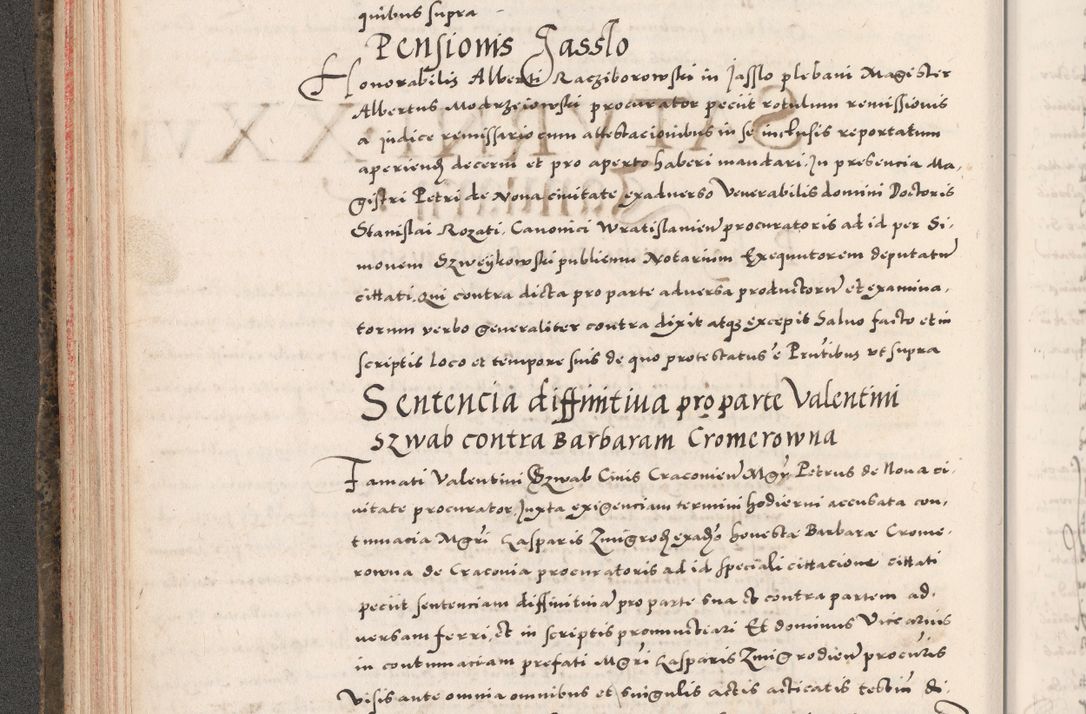 quibus supra
Pensionis Jasslo
Honorabilis Alberti Racziborowski in Jasslo plebani Magister
Albertus Modrzeiowski procurator peciit rotulum remissionis
a judice remissario cum attestacionibus in se inclusis reportatum
aperiend decerni et pro aperto haberi mandari, In presencia Ma-
gistri Petri de Nova civitate exadverso Venerabilis domini Doctoris
Stanislai Rozati, Canonici Wratislavien procuratoris ad id per Si-
monem Szweykowski publicum Notarium Exequutorem deputatu
cittati, Qui contra dicta pro parte adversa productoru et examina-
torum verbo generaliter contra dixit atq excepit Salvo facto et in
scriptis loco et tempore suis de quo protestatus e Prutibus ut supra
Sentencia diffinitiva pro parte Valentini
Szwab contra Barbaram Cromerowna
Famati Valentini Szwab Civis Cracovien Mgr Petrus de Nova ci-
vitate procurator, Juxta exigenciam termini hodierni accusata con-
tumacia Mgri Casparis Zmigrod exadvo honeste Barbare Crome-
rowna de Cracovia procuratoris ad id speciali cittacione cittati
peciit sentenciam diffinitiva pro parte sua et contra partem ad-
versam ferri, et in scriptis pronunctiari Et dominus Vicearius
in contumaciam prefati Mgri Casparis Zmigrodien procuris
Visis ante omnia omnibus et singulis actis acticatis testiu di-